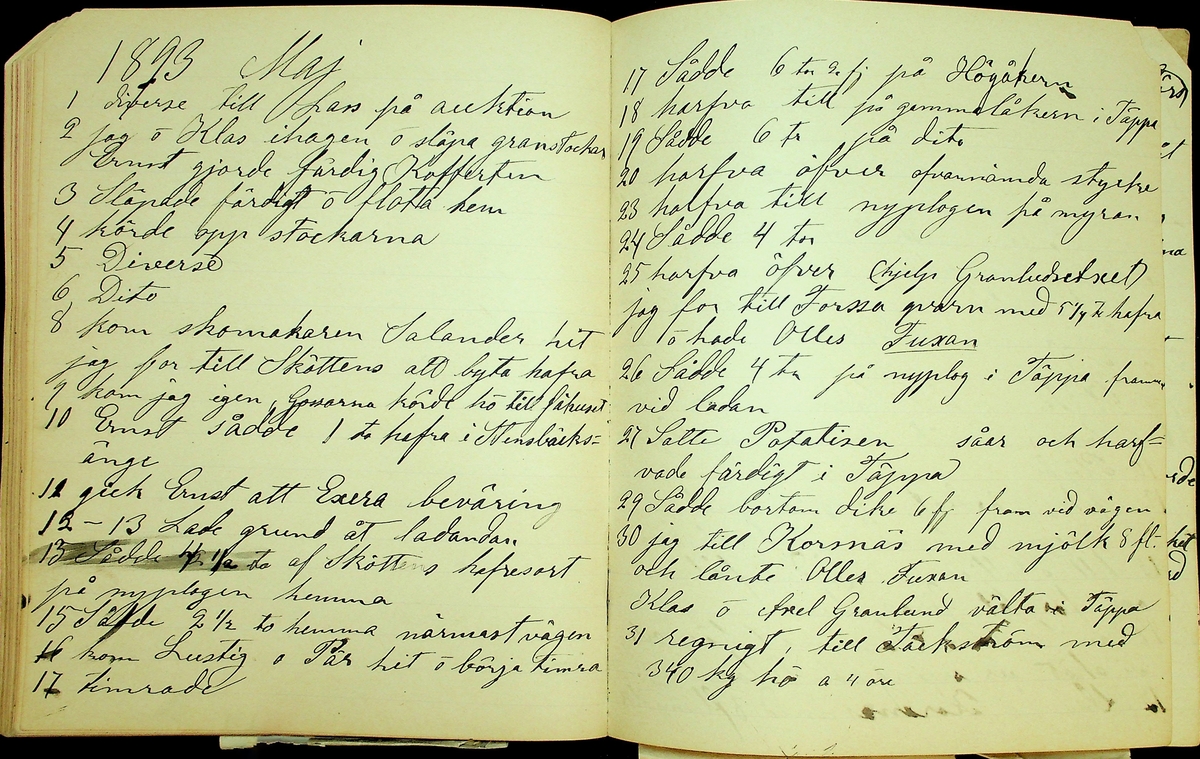 1893 Maj
1 diverse till Lars på auktion
2 jag o Klas ihagen o släpa granstockar
Ernst gjorde färdig Kofferten
3 Släpade färdigt o flota hem
4 körde opp stockarna
5 Diverse
6 Dito
8 kom skomakaren Salander hit
jag for till Sköttens att byta hafra
9 kom jag igen, Gossarna körde hö till fähuset
10 Ernst sådde 1 ta hafra i Stensbäcks=
änge
11 gick Ernst att Exera beväring
12-13 Lade grund åt ladandan
13 Sådde 1/2 ta af Sköttens hafresort
på nyplogen hemma
15 Sådde 2 1/2 ta hemma närmast vägen
16 kom Lustig o Pär hit o börja timra
17 timrade
17 Sådde 6 tnr 2 fj på Högåkern
18 harfva till på gammelåkern i Täppa
19 Sådde 6 tr på dito
20 harfva öfver ofvannämda stycke
23 harfva till nyplogen på myran
24 Sådde 4 tnr
25 harfva öfver (hjelp Granlunds
jag for till Forssa qvarn med 5 1/4 ta hafra
o hade Olles Fuxan
26 Sådde 4 tnr på nyplog i Täppa fram
vid ladan
27 Satte Potatisen såar och harf=
vade färdigt i Täppa
29 Sådde bortom dike 6 fj fram vid vägen
30 jag till Korsnäs med mjölk 8 ft.
och lånte Olles Fuxan
Klas o Axel Granlund välta i Täppa
31 regnigt, till Täckström med
340 kg hö a 4 öre